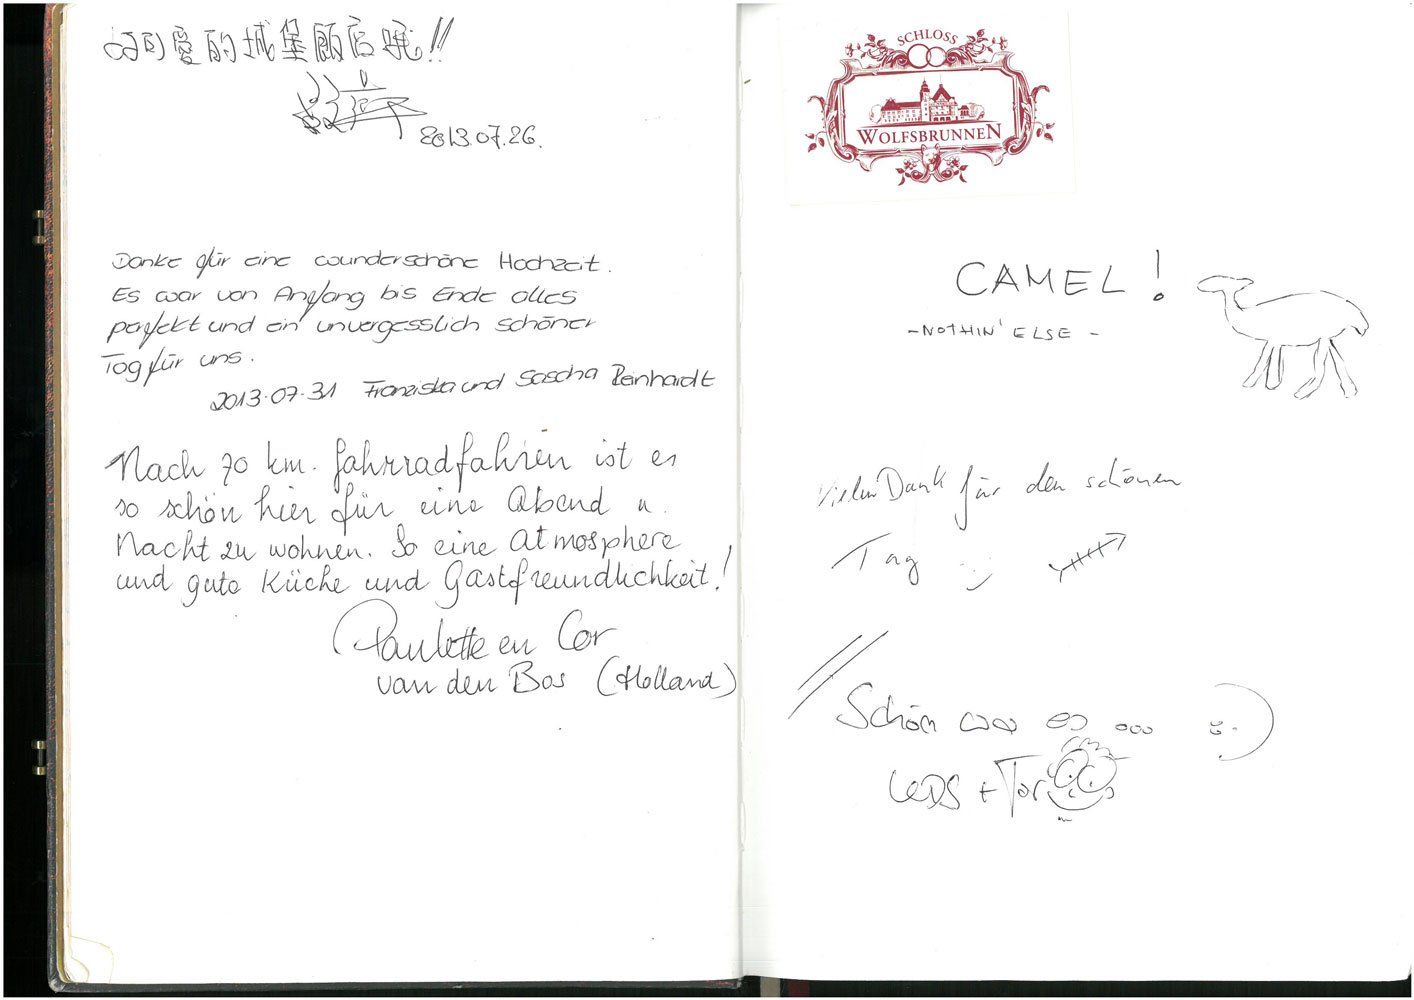 可愛的城堡飯店
!!
2013.07.26.
Danke für eine wunderschöne Hochzeit.
Es war von Anfang bis Ende alles
perfekt und ein unvergesslich schöner
Tag für uns.
2013.07.31 Franziska und Sascha Reinhardt
Nach 70 km. fahrradfahren ist es
so schön hier für eine Abend u.
Nacht zu wohnen. So eine Atmosphere
und gute Küche und Gastfreundlichkeit!
Paulette en Cor
van den Bos (Holland)
SCHLOSS
WOLFSBRUNNEN
CAMEL!
- NOTHIN' ELSE -
Vielen Dank für den schönen
Tag
Schön war es ...